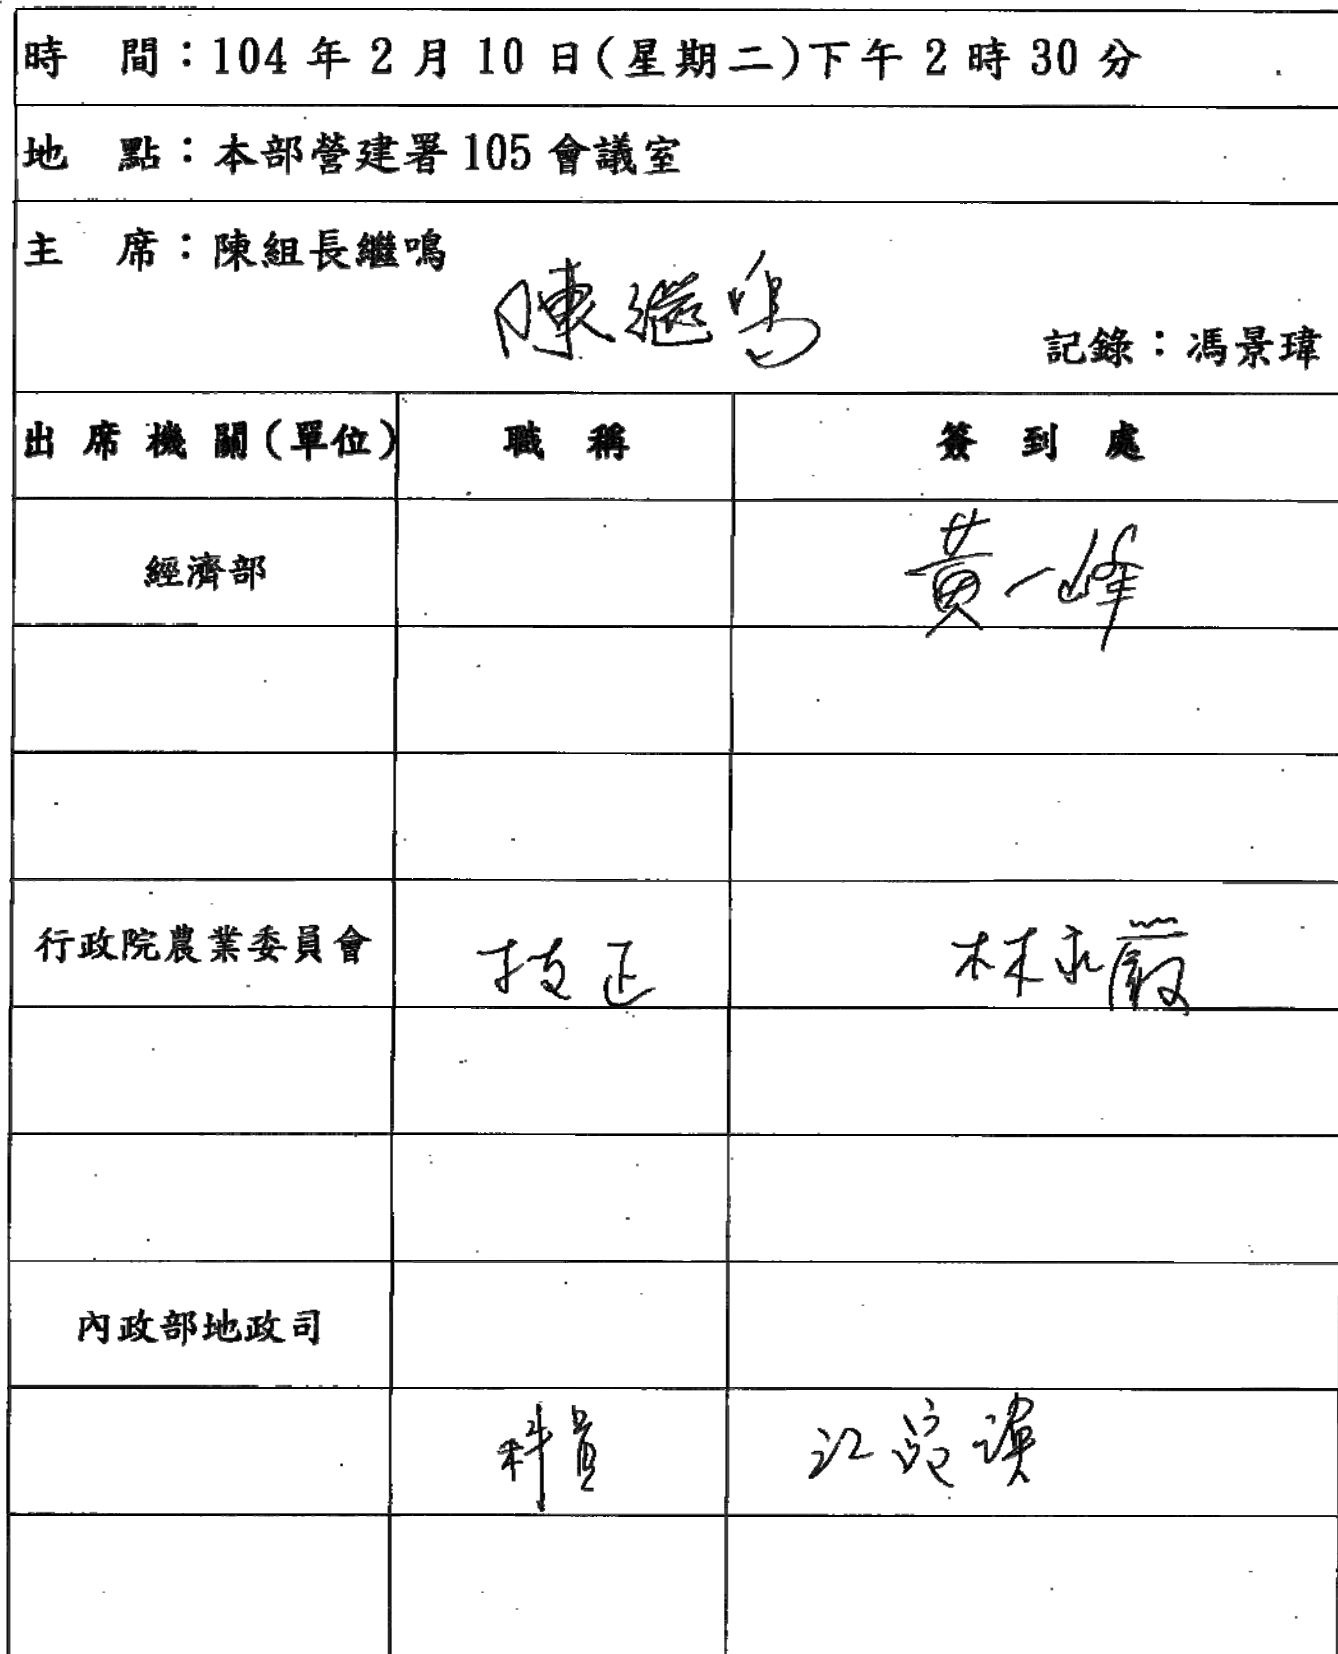 時　間：104 年 2 月 10 日(星期二)下午 2 時 30 分
地　點：本部營建署 105 會議室
主　席：陳組長繼鳴
陳繼鳴
記錄：馮景瑋
出席機關(單位)　職稱　簽到處
經濟部　黃一峰
行政院農業委員會　技正　林永
內政部地政司
科員　江